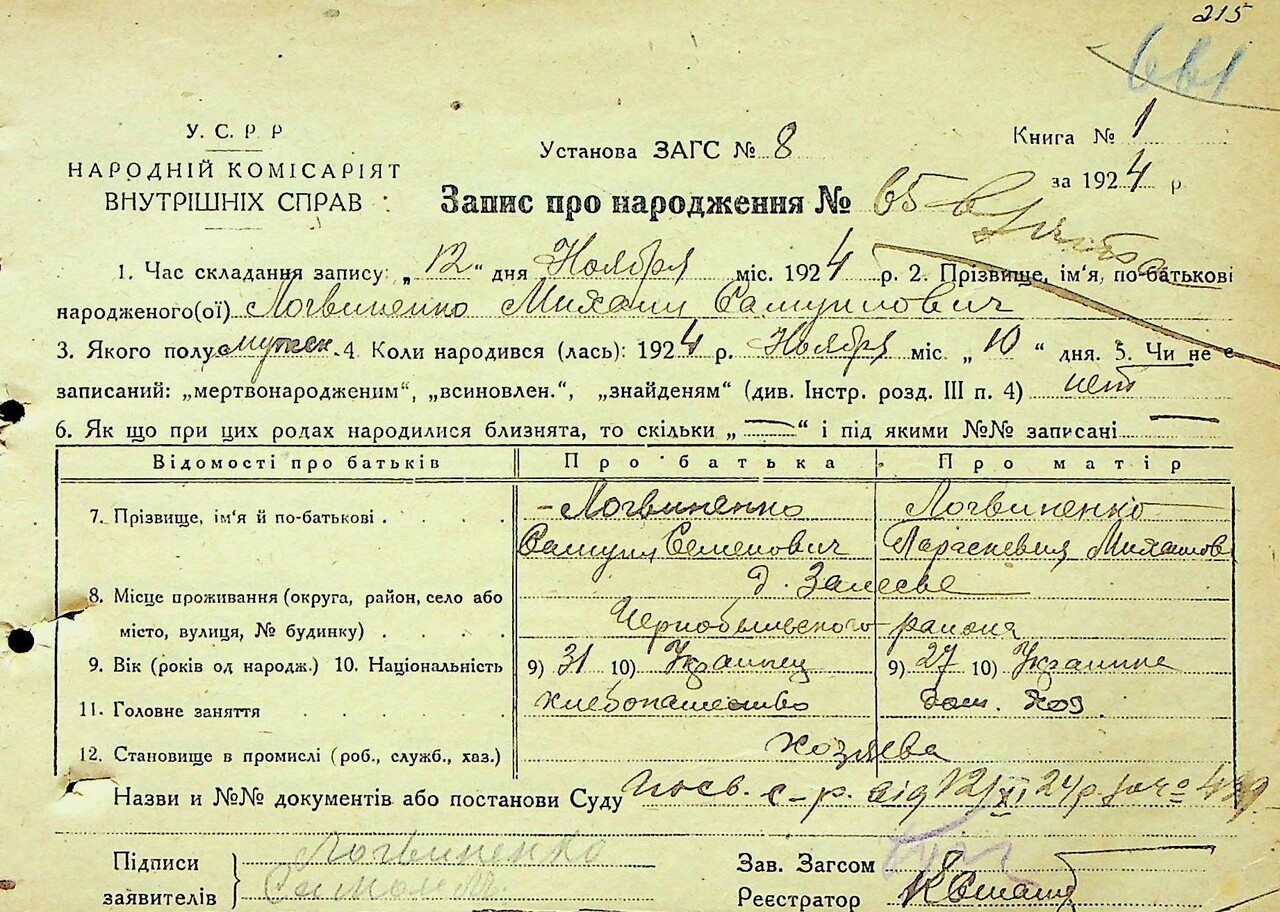 215
661
У. С. Р Р
НАРОДНІЙ КОМІСАРІЯТ
ВНУТРІШНІХ СПРАВ
Установа ЗАГС № 8
Книга № 1
за 1924 р
Запис про народження № 65
1. Час складання запису: „12“ дня Ноября міс. 1924 р. 2. Прізвище, ім'я, по-батькові
народженого(ої) Логвиненко Михаил Самуилович
3. Якого полу мужск. 4. Коли народився (лась): 1924 р. Ноября міс. „10“ дня. 5. Чи не є
записаний: „мертвонародженим“, „всиновлен.“, „знайденям“ (див. Інстр. розд. III п. 4) нет
6. Як що при цих родах народилися близнята, то скільки „—“ і під якими №№ записані —
Відомості про батьків Про батька Про матір
7. Прізвище, ім'я й по-батькові Логвиненко Логвиненко
Самуил Семенович Параскевия Михайлов
8. Місце проживання (округа, район, село або д. Залесье
місто, вулиця, № будинку) Чернобыльского района
9. Вік (років од народж.) 10. Національність 9) 31 10) Украинец 9) 27 10) Украинка
11. Головне заняття хлебопашество дом. хоз
12. Становище в промислі (роб., служб., хаз.) хозяева
Назви и №№ документів або постанови Суду Посв. с-р. від 12/XI 24р
Підписи Логвиненко
заявителів
Зав. Загсом
Реєстратор